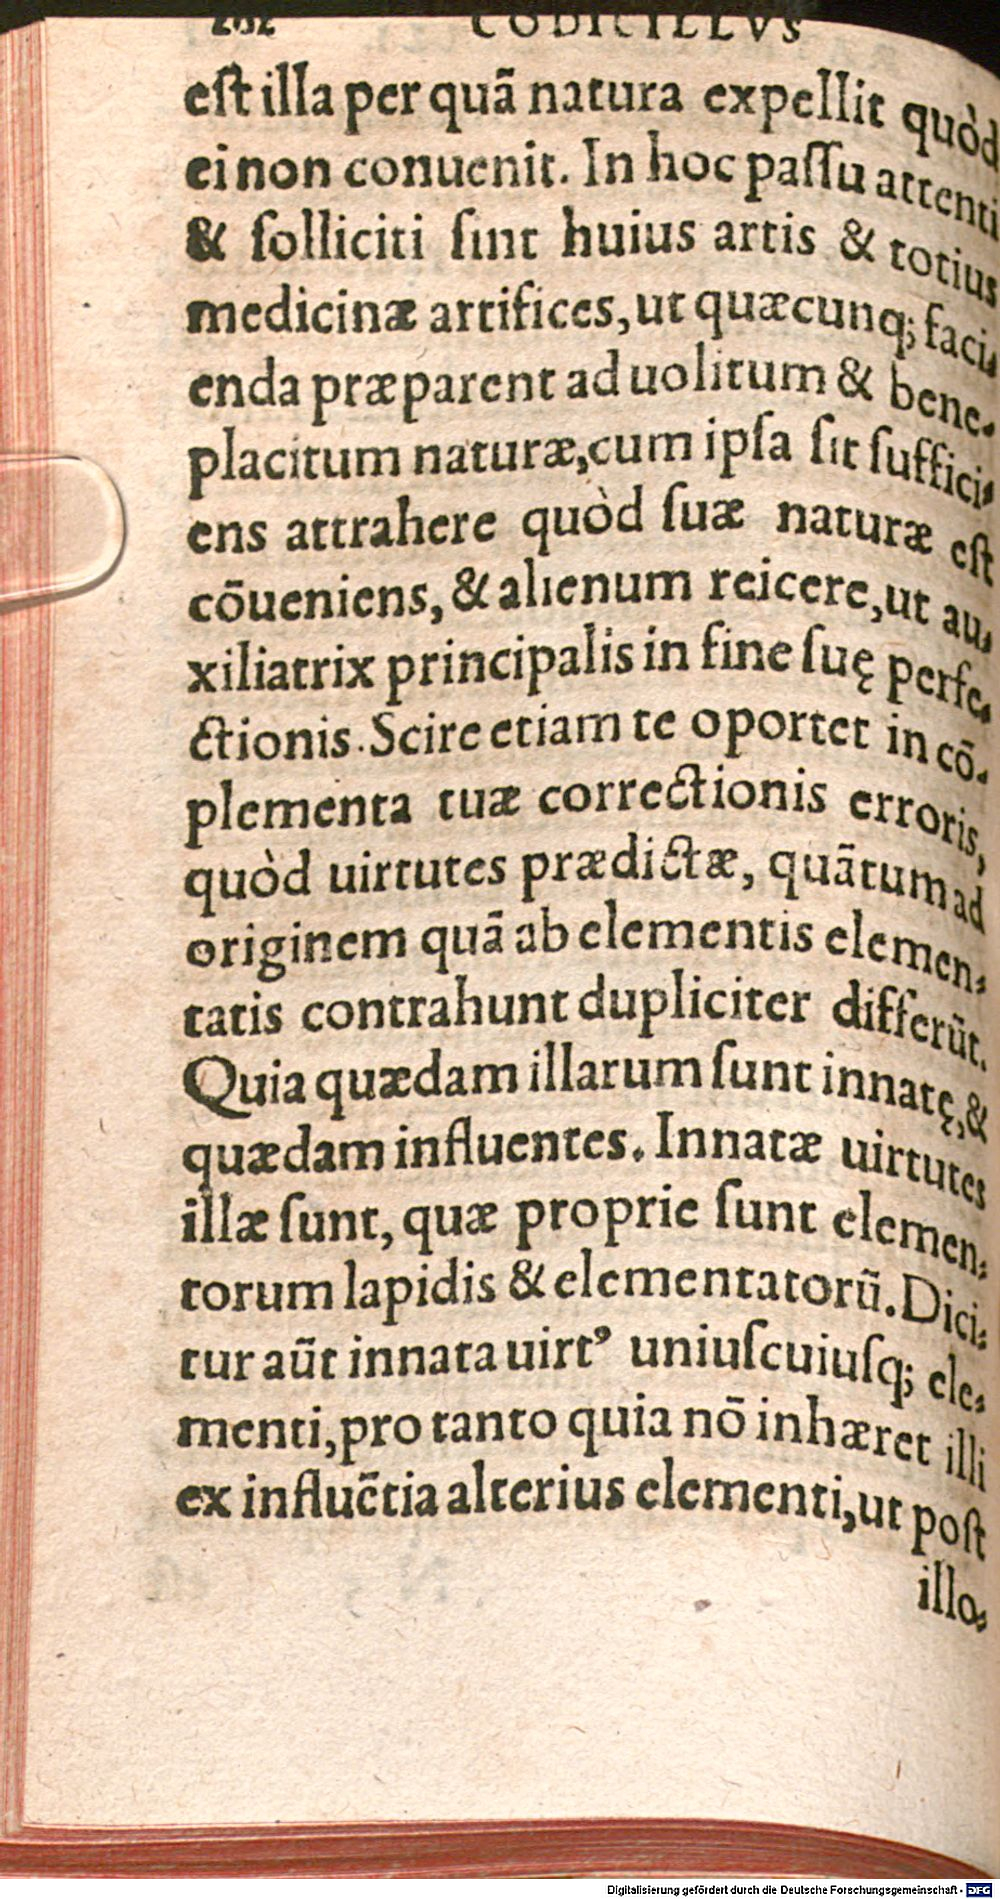 CODICILLVS
eſt illa per quã natura expellit quòd
ei non conuenit. In hoc paſſu attenti
& ſolliciti ſint huius artis & totius
medicinæ artifices, ut quæcunq; faci-
enda præparent ad uolitum & bene-
placitum naturæ, cum ipſa ſit ſuffici-
ens attrahere quòd ſuæ naturæ eſt
cõueniens, & alienum reicere, ut au-
xiliatrix principalis in fine ſuę perfe-
ctionis. Scire etiam te oportet in cõ-
plementa tuæ correctionis erroris,
quòd uirtutes prædictæ, quãtum ad
originem quã ab elementis elemen-
tatis contrahunt dupliciter differũt.
Quia quædam illarum ſunt innatę, &
quædam influentes. Innatæ uirtutes
illæ ſunt, quæ proprie ſunt elemen-
torum lapidis & elementatorũ. Dici-
tur aũt innata uirtꝰ uniuſcuiuſq; ele-
menti, pro tanto quia nõ inhæret illi
ex influẽtia alterius elementi, ut poſt
illo-
Digitalisierung gefördert durch die Deutsche Forschungsgemeinschaft - DFG